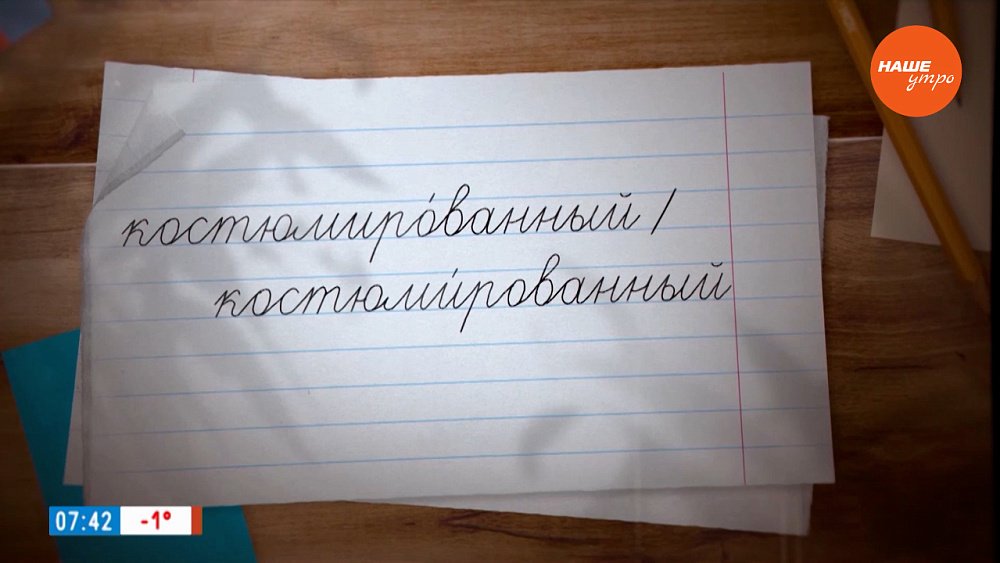 НАШЕ
утро
костюмиро́ванный /
костюми́рованный
07:42 -1°